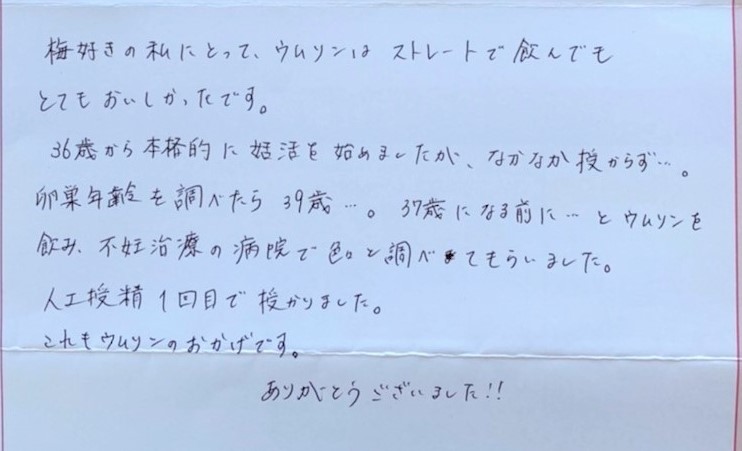 梅好きの私にとって、ウムソンは ストレートで飲んでも
とてもおいしかったです。
36歳から本格的に妊活を始めましたが、なかなか授からず…。
卵巣年齢を調べたら39歳…。37歳になる前に…とウムソンを
飲み、不妊治療の病院で色々と調べてもらいました。
人工授精1回目で授かりました。
これもウムソンのおかげです。
ありがとうございました!!